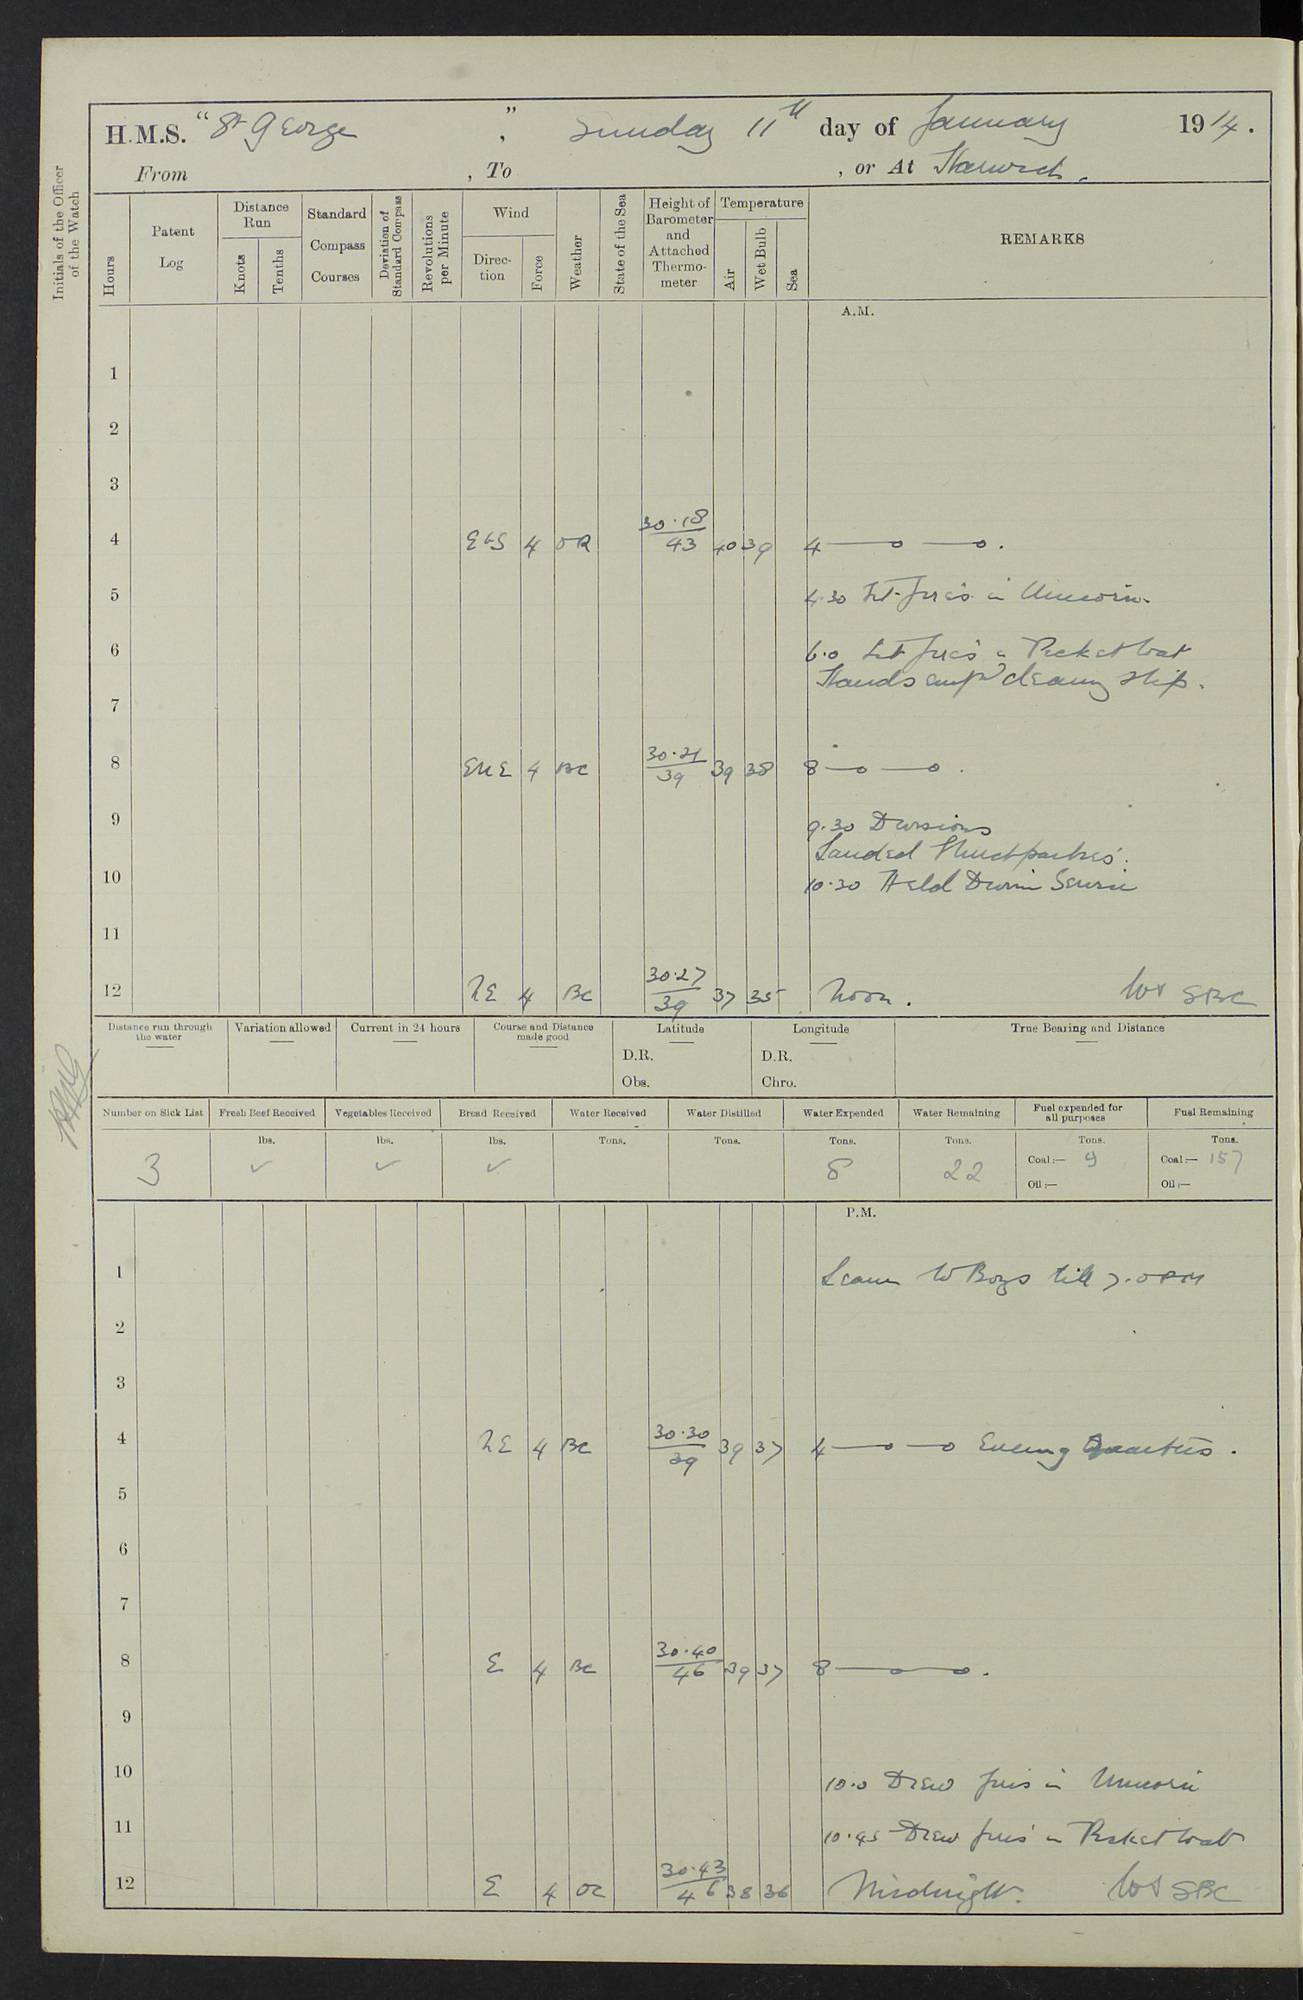 H.M.S. "St George", Sunday 11th day of January 1914.
From , To , or At Harwich.
Initials of the Officer of the Watch
Hours
Patent Log
Distance Run
Knots
Tenths
Standard Compass Courses
Deviation of Standard Compass
Revolutions per Minute
Wind
Direction
Force
Weather
State of the Sea
Height of Barometer and Attached Thermometer
Temperature
Air
Wet Bulb
Sea
REMARKS
A.M.
1
2
3
4 EbS 4 OR 30.18 43 40 39 4 —o —o.
5 4.30 Lit fires in Unicorn.
6 6.0 Lit fires in Picket boat
Hands empd cleaning ship.
7
8 ENE 4 BC 30.21 39 39 38 8 —o —o.
9 9.30 Divisions
Landed Church parties.
10 10.30 Held Divine Service
11
12 NE 4 BC 30.27 39 37 35 Noon. SBC
Distance run through the water
Variation allowed
Current in 24 hours
Course and Distance made good
Latitude
D.R.
Obs.
Longitude
D.R.
Chro.
True Bearing and Distance
Number on Sick List
Fresh Beef Received
Vegetables Received
Bread Received
Water Received
Water Distilled
Water Expended
Water Remaining
Fuel expended for all purposes
Fuel Remaining
3
lbs. ✓
lbs. ✓
lbs. ✓
Tons.
Tons.
Tons. 8
Tons. 22
Tons. Coal:— 9 Oil:—
Tons. Coal:— 157 Oil:—
P.M.
1 Leave to Boys till 7.0 PM
2
3
4 NE 4 BC 30.30 39 39 37 4 —o —o Evening Quarters.
5
6
7
8 E 4 BC 30.40 46 39 37 8 —o—o.
9
10 10.0 Drew fires in Unicorn
11 10.45 Drew fires in Picket boat
12 E 4 OC 30.43 46 38 36 Midnight. SBC